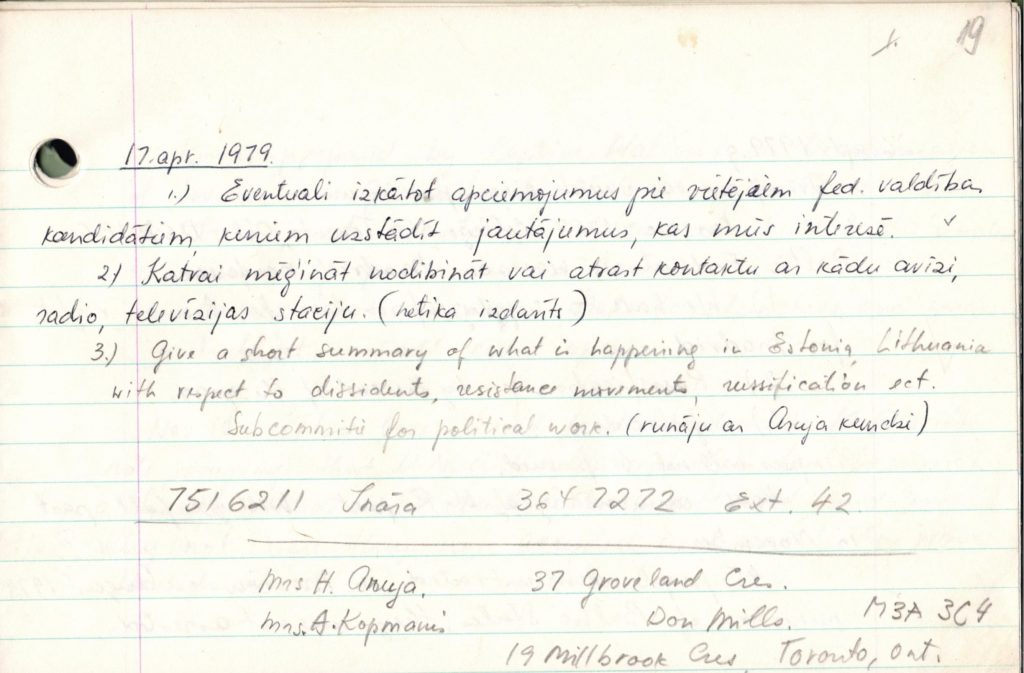 19
17. apr. 1979.
1.) Eventuali izkārtot apciemojumus pie vietējiem fed. valdības
kandidātiem kuriem uzstādīt jautājumus, kas mūs interesē.
2) Katrai mēģināt nodibināt vai atrast kontaktu ar kādu avīzi,
radio, televīzijas staciju. (netika izdarīts)
3.) Give a short summary of what is happening in Estonia, Lithuania
with respect to dissidents, resistance movements, russification ect.
Subcommitte for political work. (runāju ar Aruja kundzi)
7516211 Ināra 364 7272 Ext. 42
Mrs H. Aruja. 37 Groveland Cres.
Mrs. A. Kopmanis Don Mills. M3A 3C4
19 Millbrook Cres, Toronto, Ont.